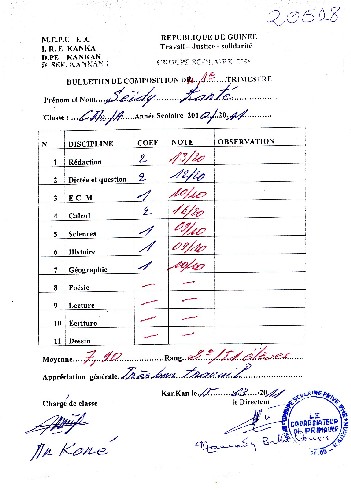 20608
M.E.P.U - E.C
I. R. E KANKA
D.P.E KANKAN
REPUBLIQUE DE GUINEE
Travail - Justice - solidarité
BULLETTIN DE COMPOSITION DU 1er TRIMESTRE
Prénom et Nom Seidy Kanté
Classe : Année Scolaire 2010/2011
N DISCIPLINE COEF NOTE OBSERVATION
1 Rédaction 2 17/20
2 Dictée et question 2 18/20
3 E C M 1 10/10
4 Calcul 2 16/20
5 Sciences 1 09/10
6 Histoire 1 08/10
7 Géographie 1
8 Poésie — —
9 Lecture — —
10 Ecriture — —
11 Dessin — —
Moyenne 7,90 Rang 2e/51 élèves
Appréciation générale Très bon travail
Kankan le 15 03 2011
Chargé de classe le Directeur
Mr Koné
LE COORDINATEUR DU PRIMAIRE